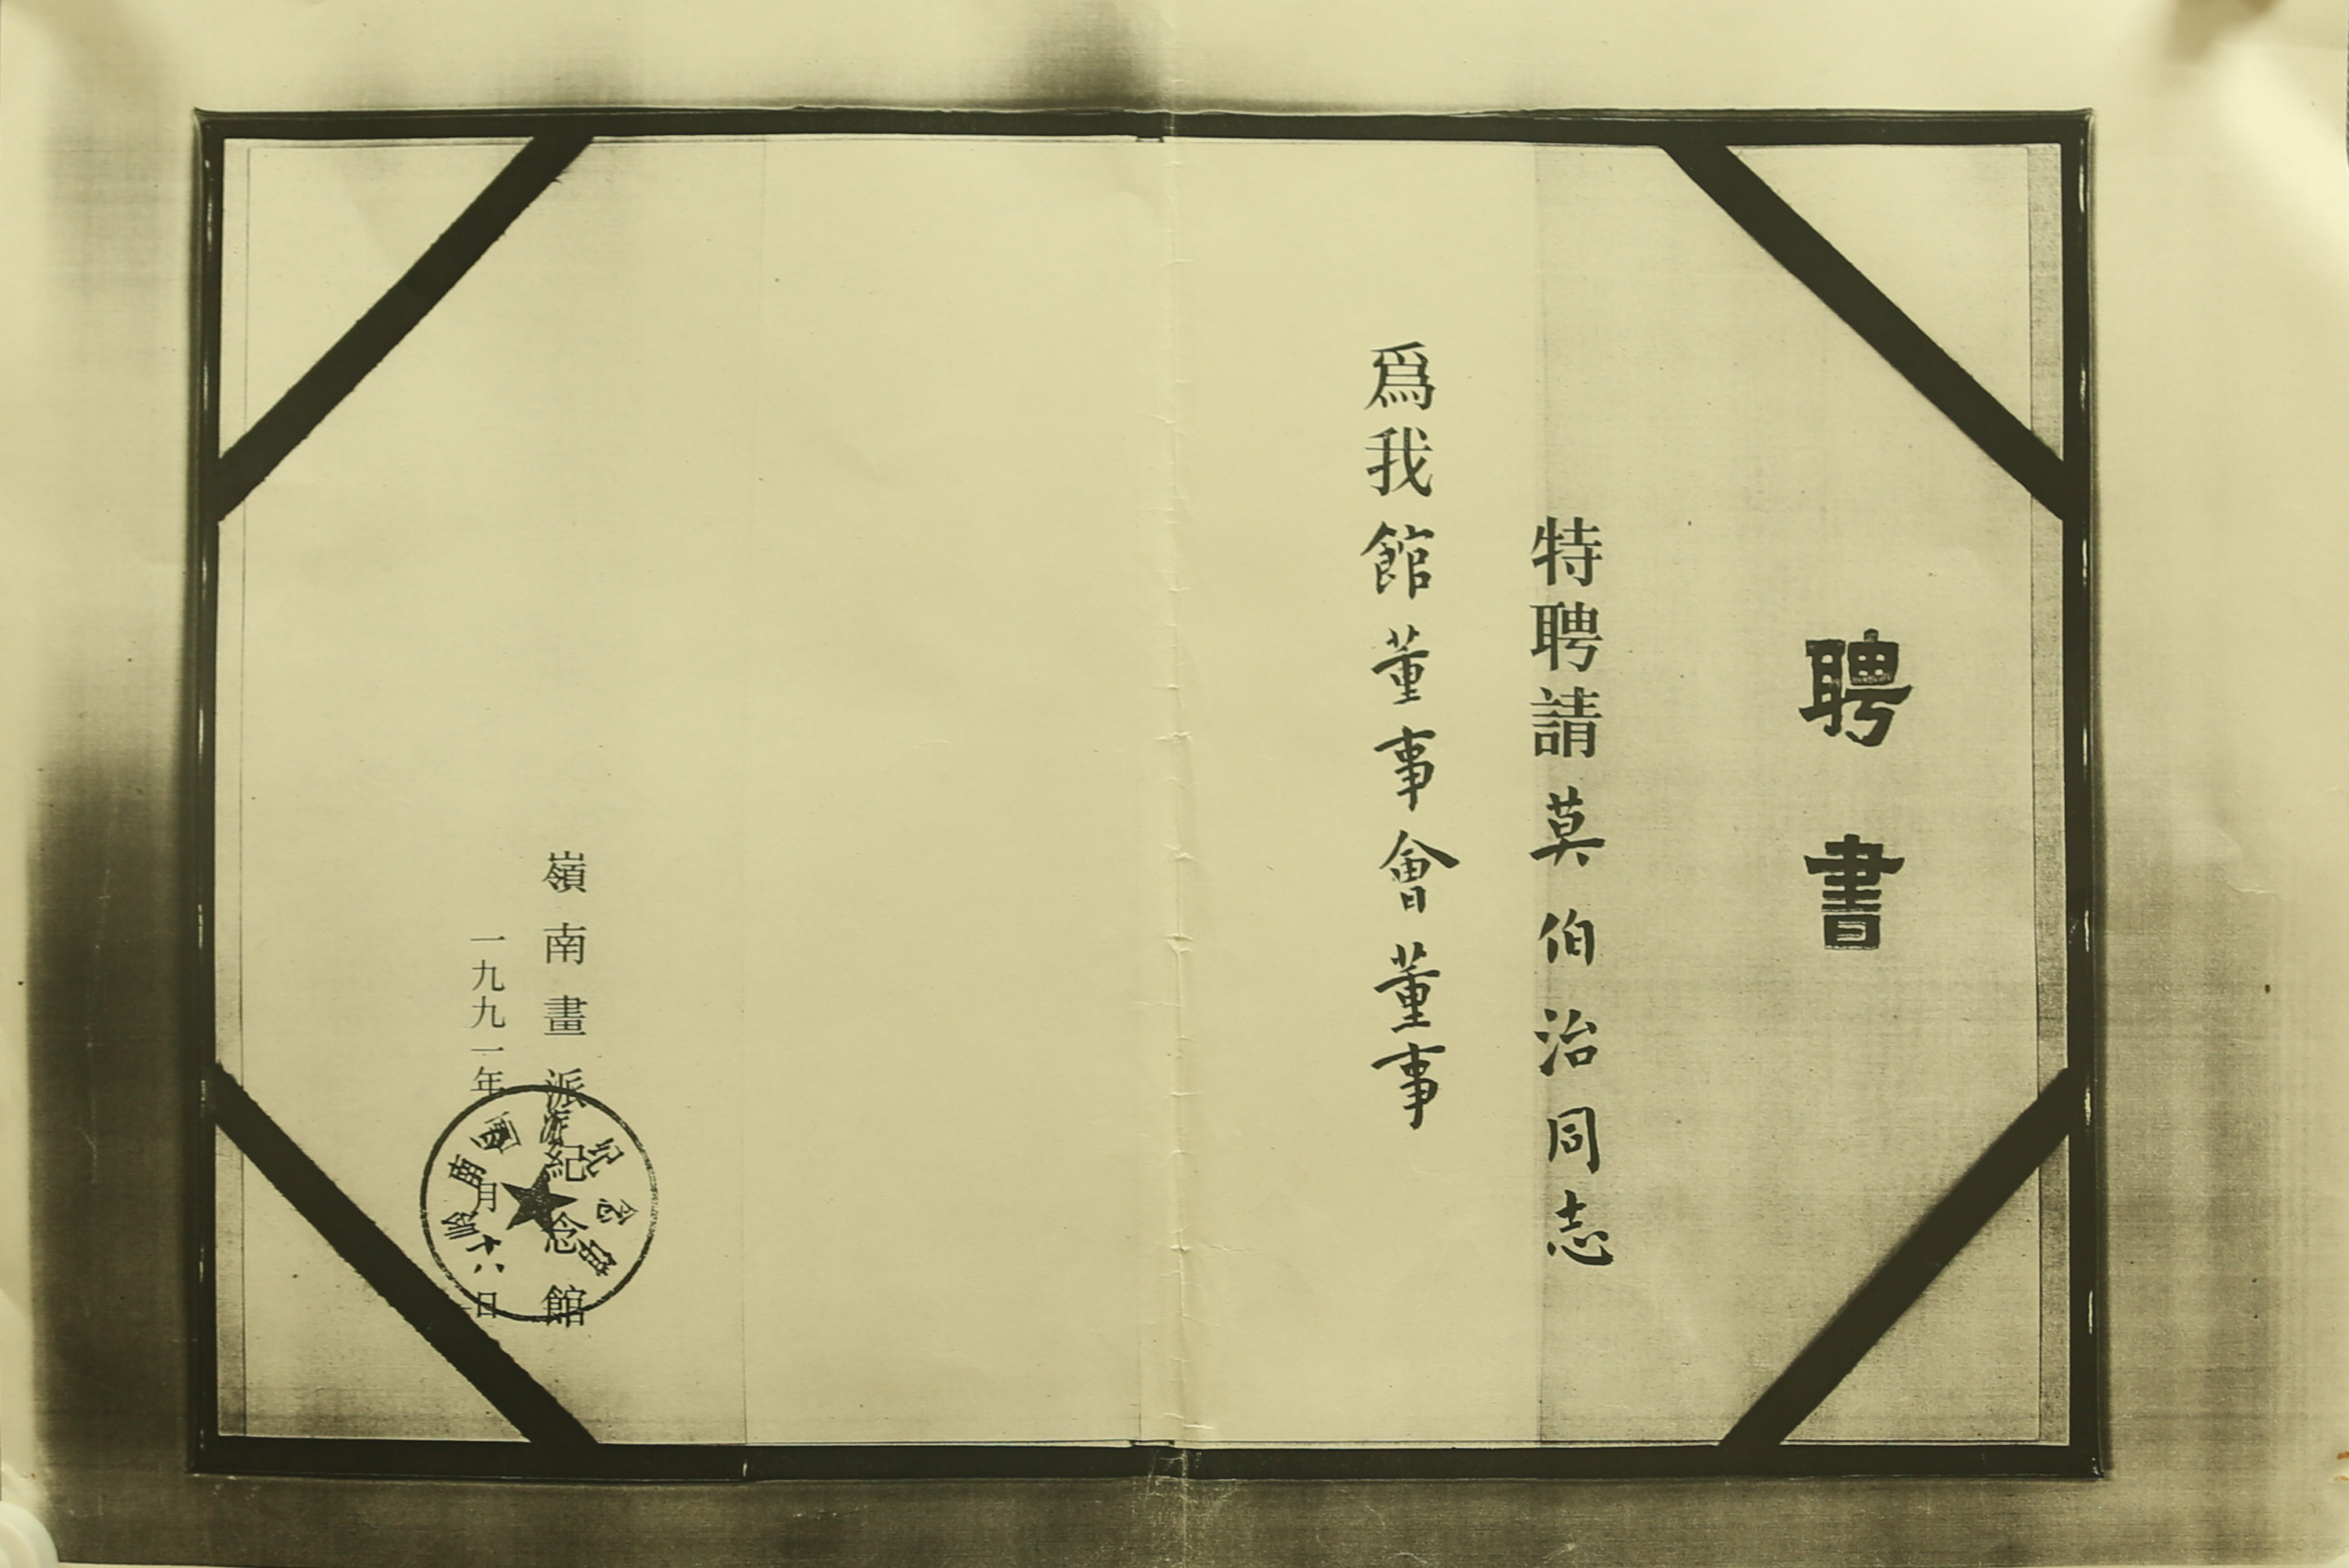 聘書
特聘請莫伯治同志
爲我館董事會董事
嶺南畫派紀念館
一九九一年 月十六日
嶺南畫派紀念館